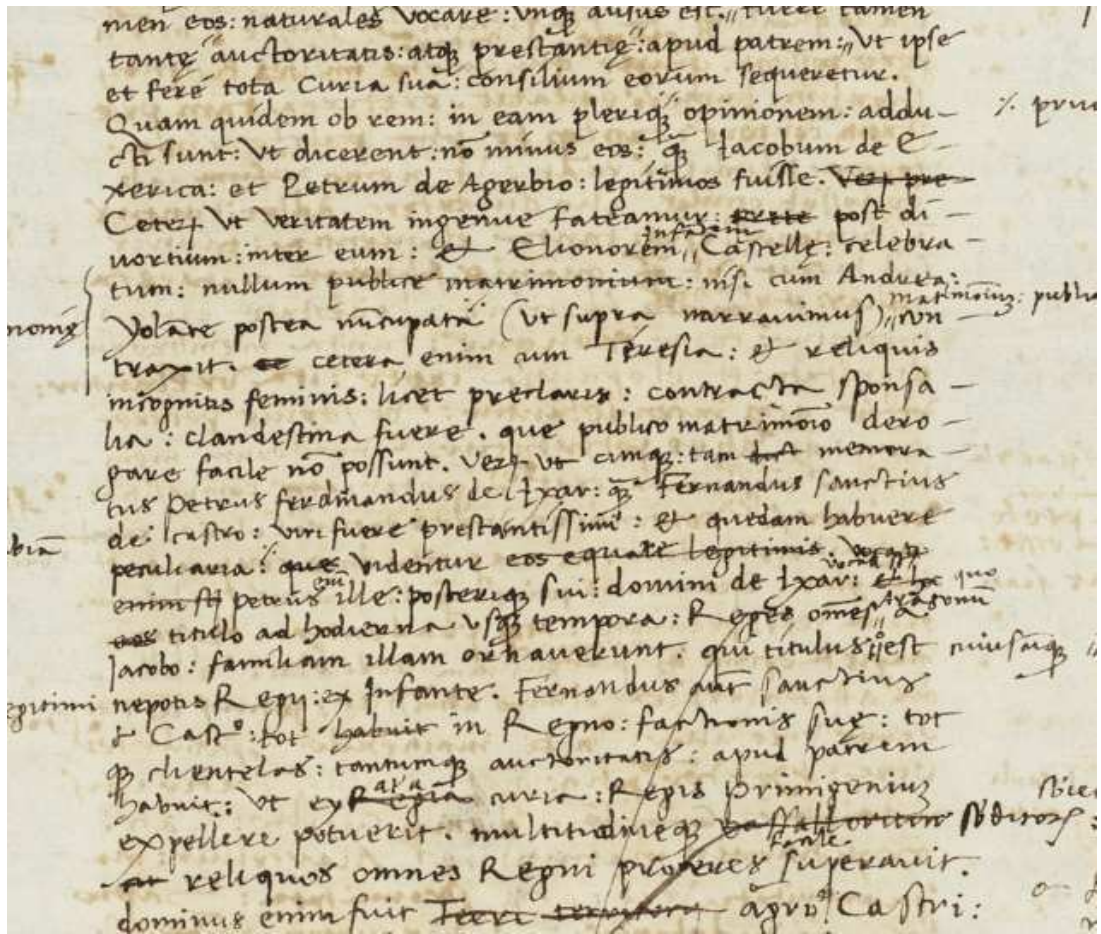 men eos: naturales vocare: unq̃ ausus est. fuere tamen
tantę auctoritatis: atq̃ prestantię: apud patrem: ut ipse
et ferè tota Curia sua: consilium eorum sequeretur.
Quam quidem ob rem: in eam pleriq̃ opinionem: addu-
cti sunt: ut dicerent: nõ minus eos: q̃ Iacobum de E-
xerica: et Petrum de Agerbio: legitimos fuisse.
Ceterꝝ ut veritatem ingenue fateamur: post di-
uortium: inter eum: et Elionorem infantem Castellę: celebra
tum: nullum publice matrimonium: nisi cum Andrea:
Yolãte postea nũcupata (ut supra narravimus) con
traxit. cetera enim cum Teresia: et reliquis
incognitis feminis: licet preclaris: contracta sponsa-
lia: clandestina fuere. que publico matrimõio dero-
gare facile nõ possunt. Verꝝ ut cũnque: tam memora-
tus Petrus ferdinandus de Ixar: q̃ Fernandus sanctius
de Castro: viri fuere prestantissimi: et quedam habuere
peculiaria: que videntur eos equare legitimis.
petrus ille: posteriq̃ sui: domini de Ixar: quo
titulo ad hodierna usq̃ tempora: Reges oм̃es Aragonũ a
Iacobo: familiam illam ornaverunt. qui titulus est cuiusq̃
nepotis Regij: ex Infante. Fernandus aut̃ sanctius
d Castº: tot habuit in Regno: factionis suę: tot
q̃ clientelas: tantumq̃ auctoritatis: apud patrem
habuit: ut ex curia: Regis primigenium
expellere potuerit. multitudineq̃ sũditorꝝ
reliquos omnes Regni proceres facile superavit.
dominus enim fuit agrº Castri: